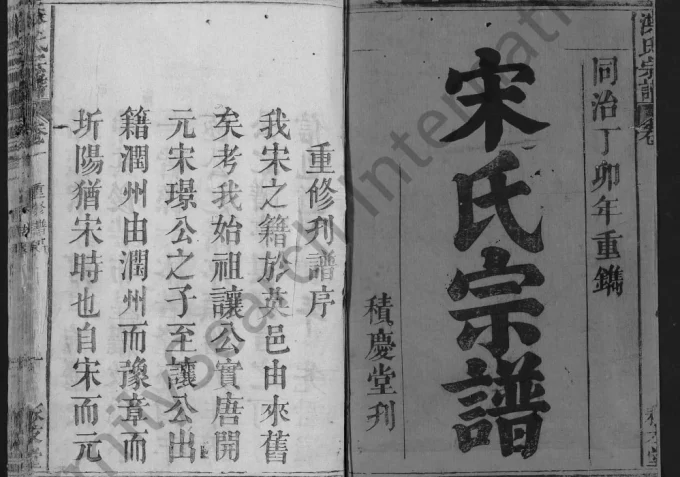 同治丁卯年重鐫
宋氏宗譜
積慶堂刊
重修刋譜序
我宋之籍於英邑由來舊
矣考我始祖讓公實唐開
元宋璟公之子至讓公出
籍潤州由潤州而豫章而
圻陽猶宋時也自宋而元